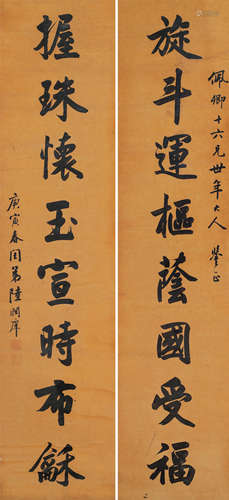 佩卿十六兄世年大人 鉴正
旋斗運樞蔭國受福
握珠懷玉宣時布龢
庚寅春日弟陸潤庠